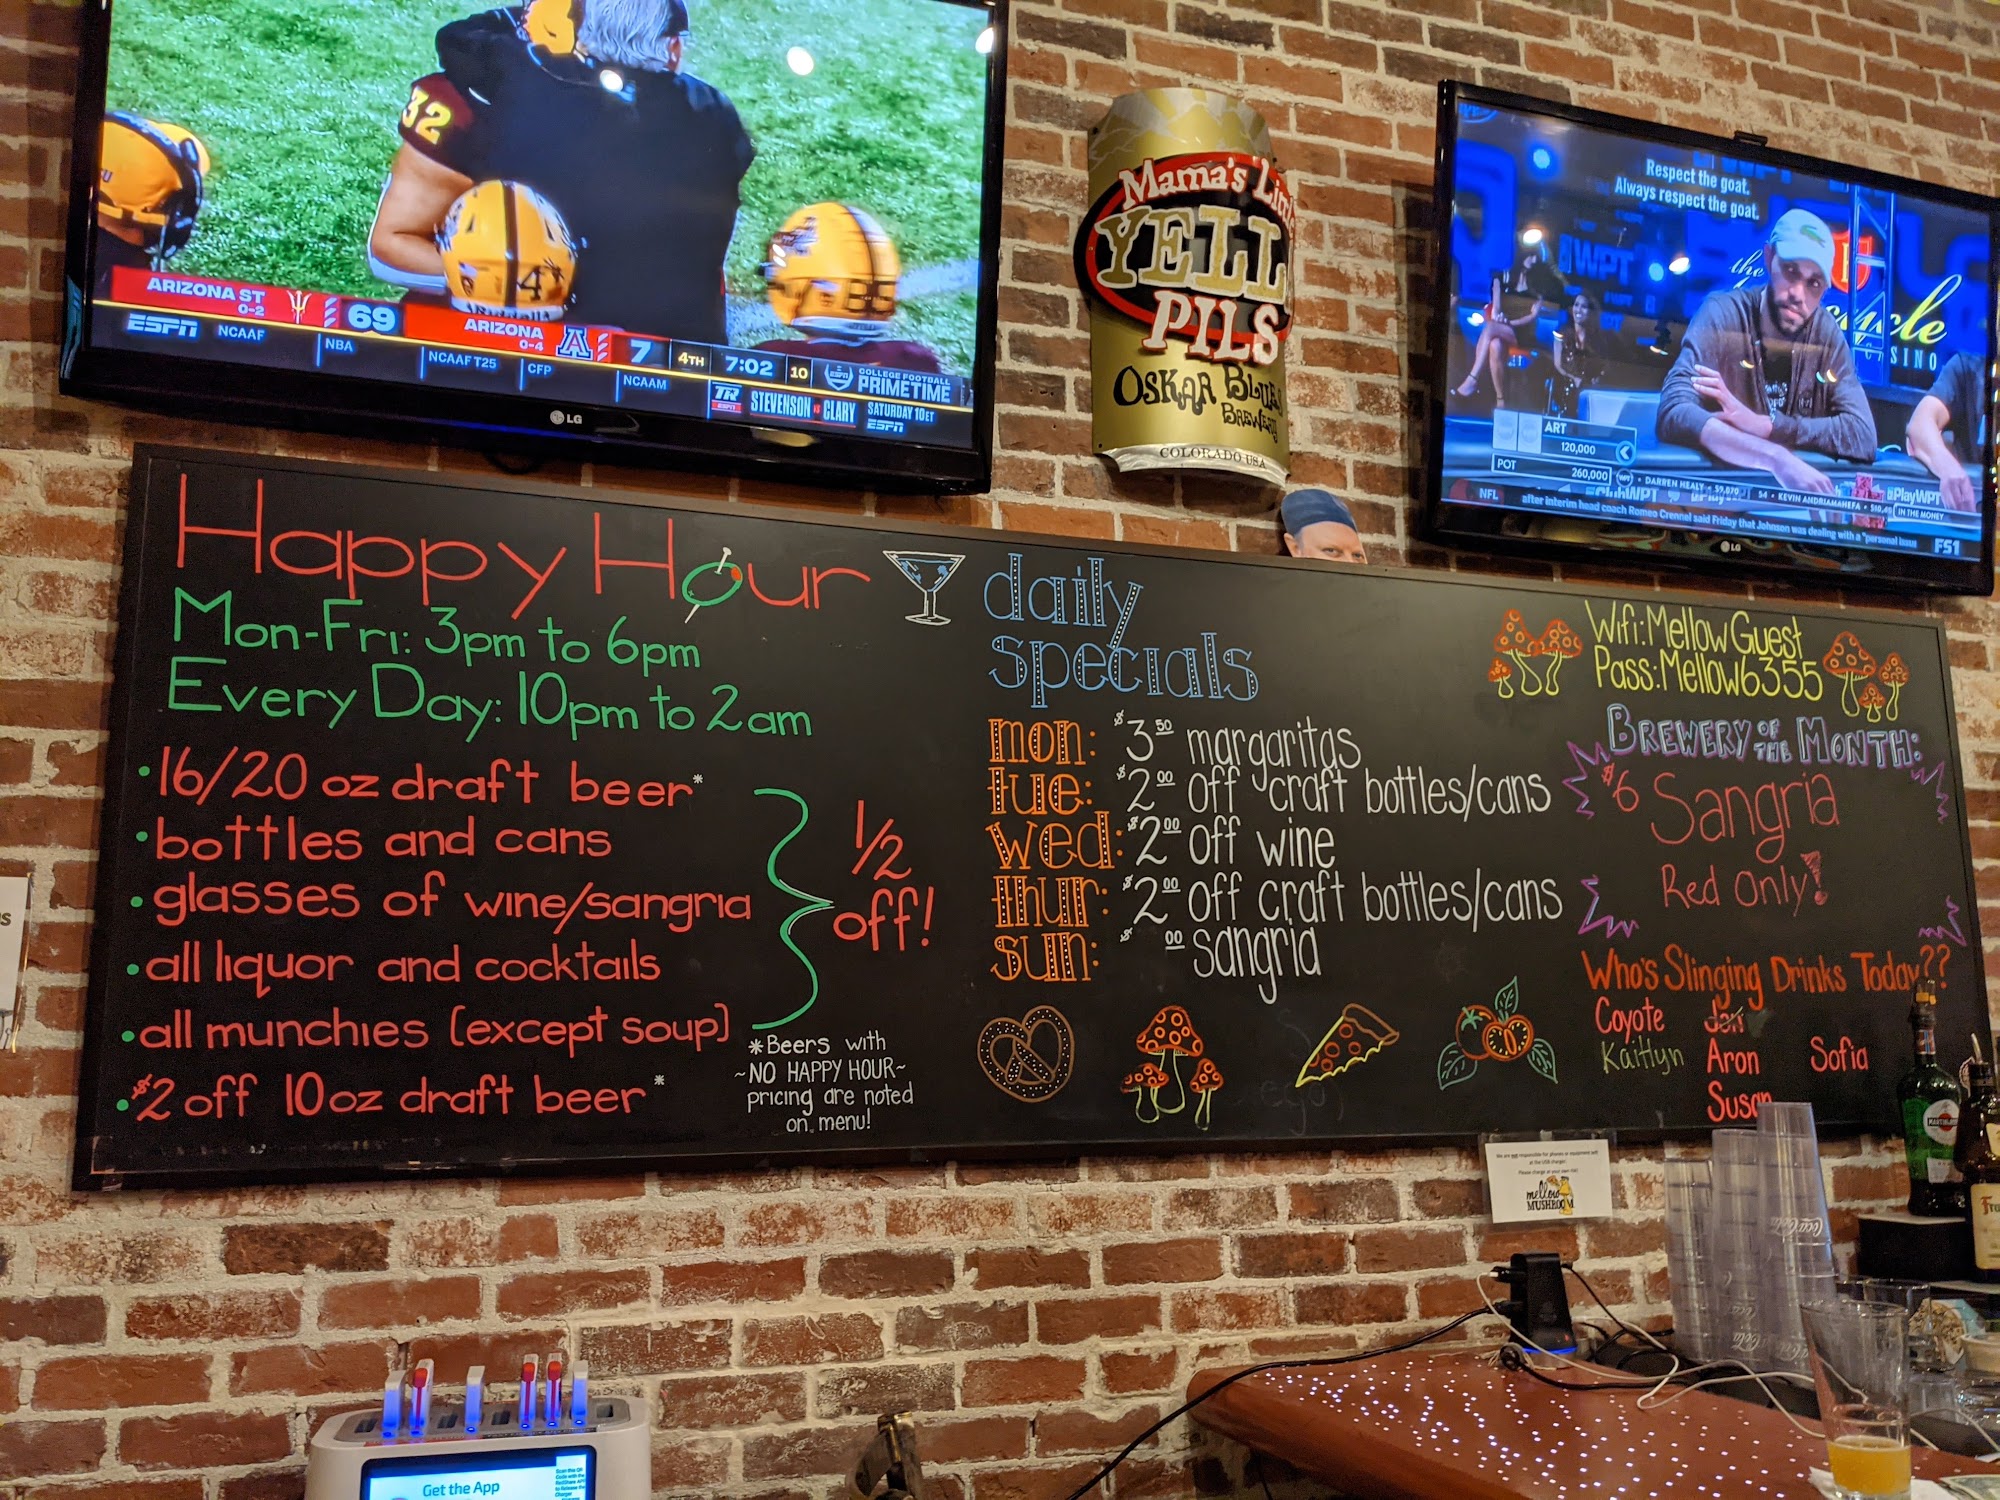 32
4
85
ARIZONA ST
0-2
69
ARIZONA
0-4
7
4TH
7:02
10
COLLEGE FOOTBALL
PRIMETIME
ESPN
NCAAF
NBA
NCAAF T25
CFP
NCAAM
TR
STEVENSON
CLARY
SATURDAY 10 ET
ESPN
LG
Mama's
YELL
PILS
OSKAR BLUES
BREWERY
COLORADO USA
Respect the goat.
Always respect the goat.
WPT
the
CASINO
ART
120,000
POT
260,000
WPT
DARREN HEALY
KEVIN ANDRIAMAHEFA
IN THE MONEY
ClubWPT
PlayWPT
NFL
after interim head coach Romeo Crennel said Friday that Johnson was dealing with a "personal issue
FS1
LG
Happy Hour
Mon-Fri: 3pm to 6pm
Every Day: 10pm to 2am
• 16/20 oz draft beer*
• bottles and cans
• glasses of wine/sangria
• all liquor and cocktails
• all munchies (except soup)
1/2
off!
• $2 off 10oz draft beer*
*Beers with
~NO HAPPY HOUR~
pricing are noted
on menu!
daily
specials
mon: $3.50 margaritas
tue: $2.00 off craft bottles/cans
wed: $2.00 off wine
thur: $2.00 off craft bottles/cans
sun: $ .00 sangria
Wifi:MellowGuest
Pass:Mellow6355
BREWERY OF THE MONTH:
$6 Sangria
Red Only!
Who's Slinging Drinks Today??
Coyote Jon
Kaitlyn Aron Sofia
Susan
We are not responsible for phones or equipment left
at the USB charger.
Please charge at your own risk!
mellow
MUSHROOM
MARTINI
Coca-Cola
Get the App